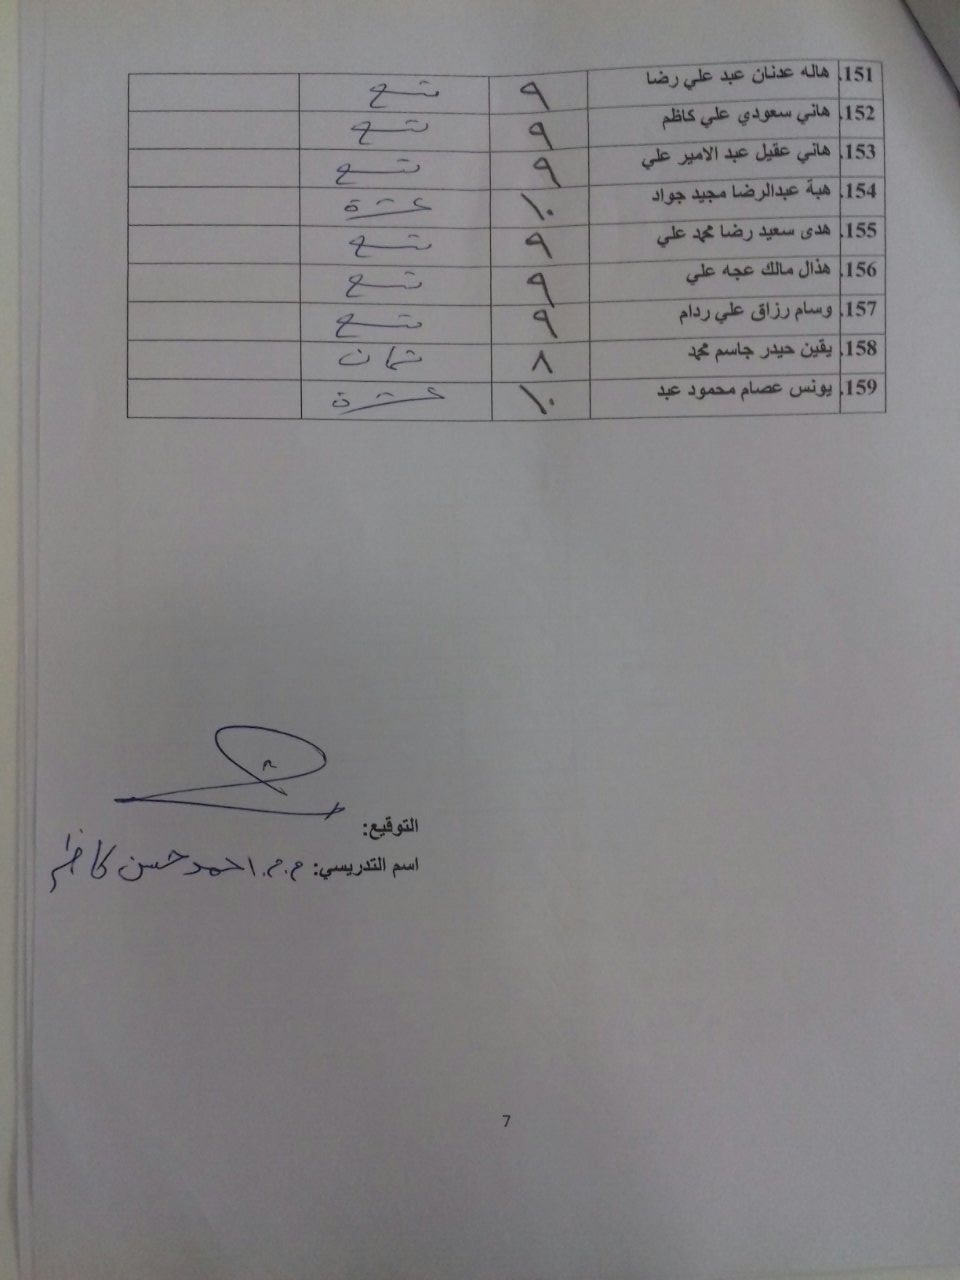 151. هاله عدنان عبد علي رضا ٩ تسع
152. هاني سعودي علي كاظم ٩ تسع
153. هاني عقيل عبد الامير علي ٩ تسع
154. هبة عبدالرضا مجيد جواد ١٠ عشرة
155. هدى سعيد رضا محمد علي ٩ تسع
156. هذال مالك عجه علي ٩ تسع
157. وسام رزاق علي ردام ٩ تسع
158. يقين حيدر جاسم محمد ٨ ثمان
159. يونس عصام محمود عبد ١٠ عشرة
التوقيع:
اسم التدريسي: م.م. احمد حسن كاظم
7